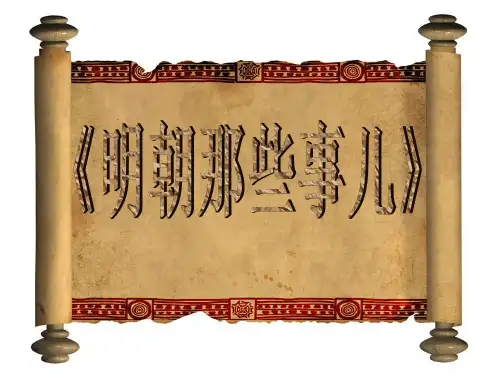 《明朝那些事儿》